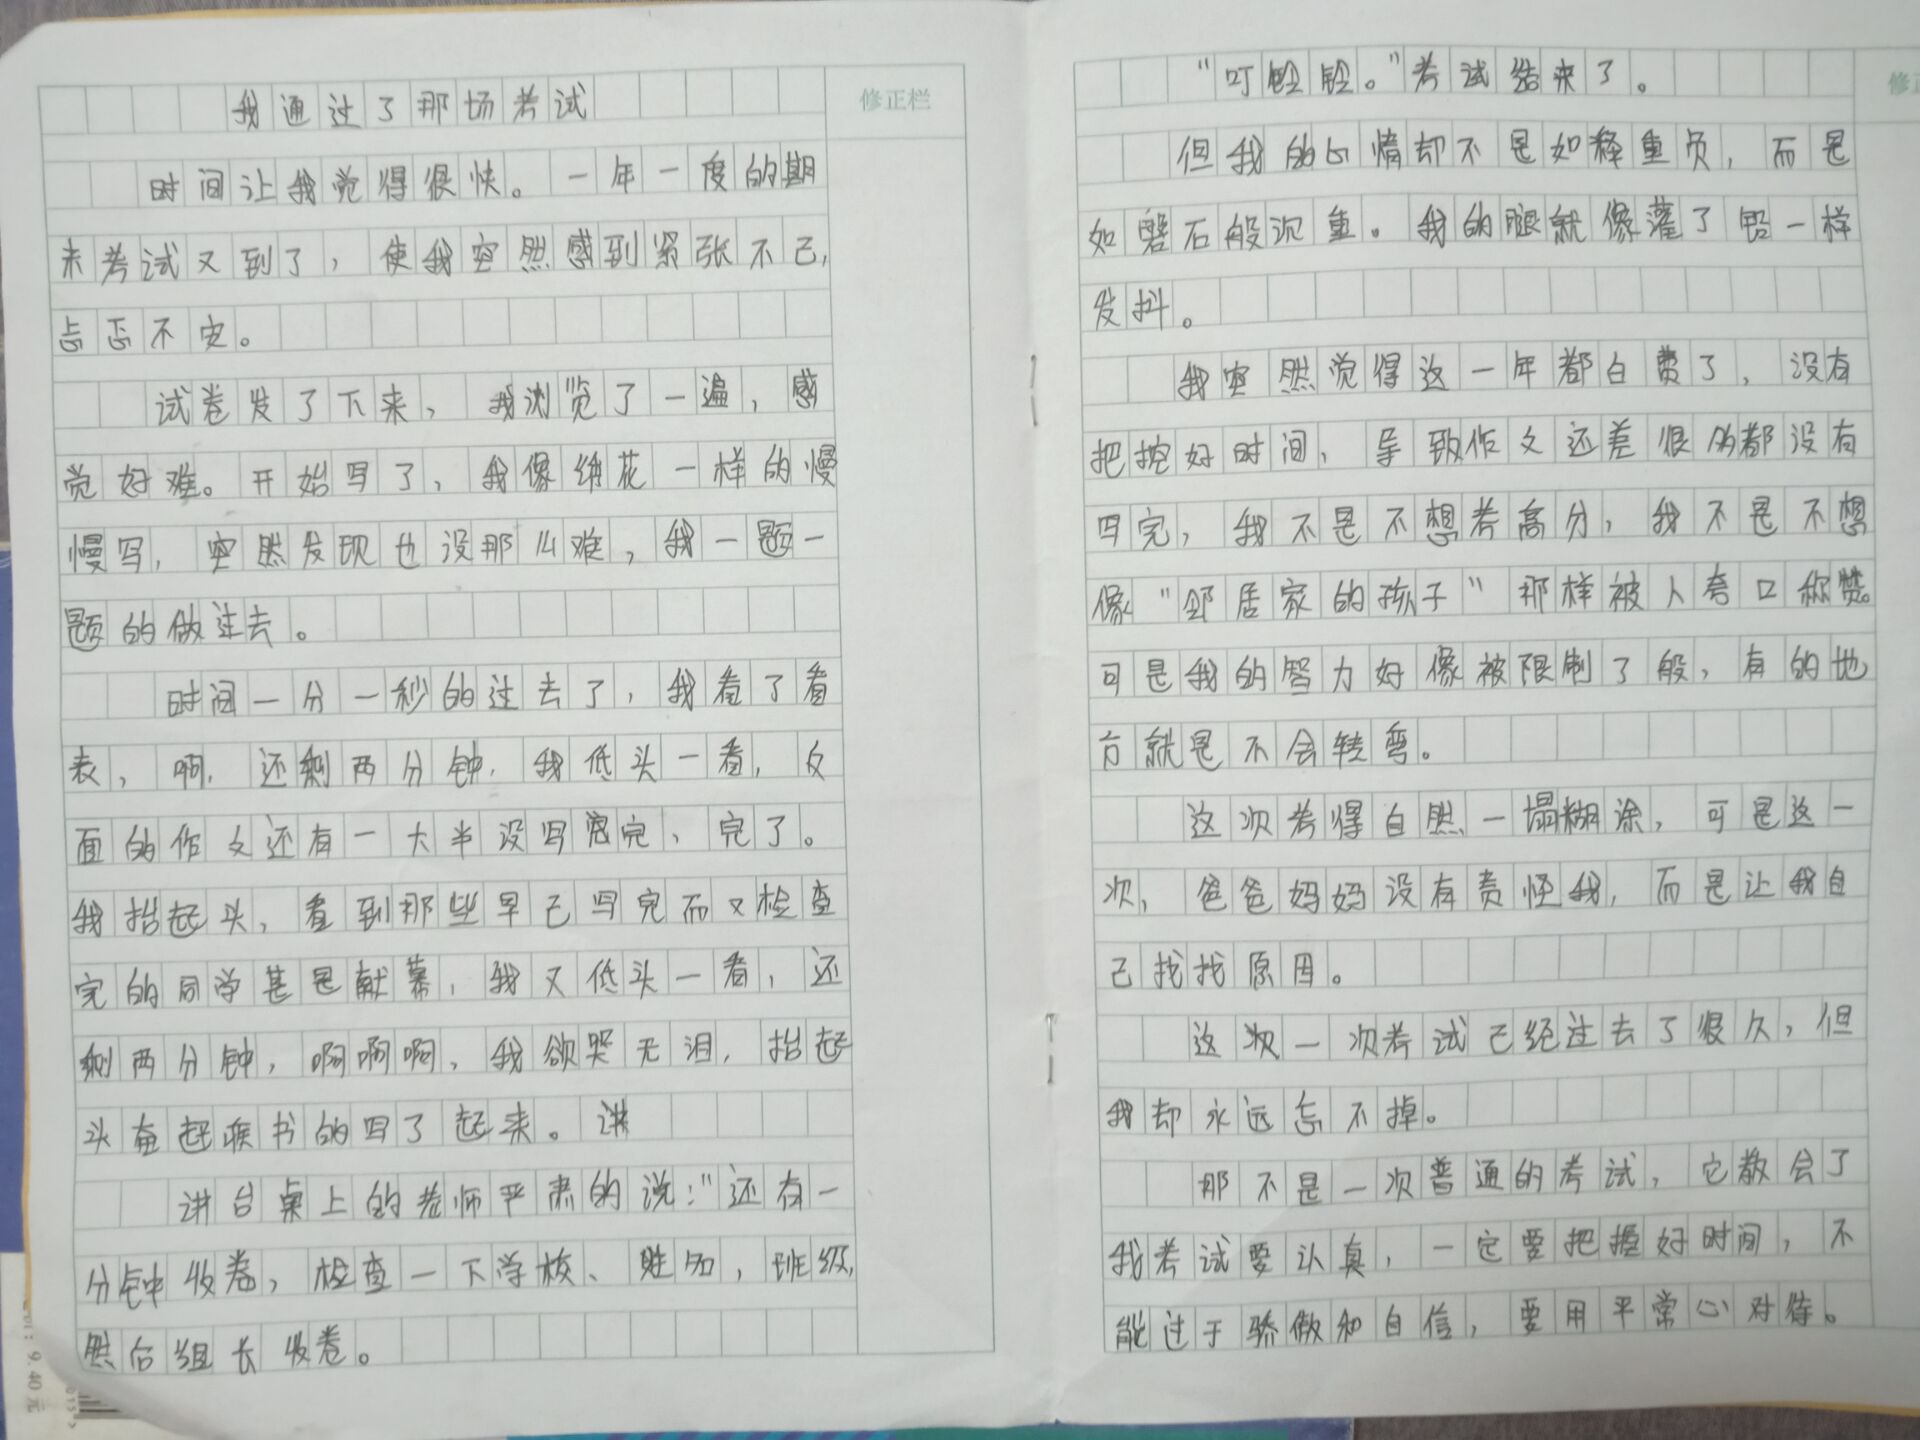 我通过了那场考试
修正栏
时间让我觉得很快。一年一度的期
末考试又到了，使我突然感到紧张不已，
忐忑不安。
试卷发了下来，我浏览了一遍，感
觉好难。开始写了，我像绣花一样的慢
慢写，突然发现也没那么难，我一题一
题的做过去。
时间一分一秒的过去了，我看了看
表，啊，还剩两分钟，我低头一看，反
面的作文还有一大半没写完，完了。
我抬起头，看到那些早已写完而又检查
完的同学甚是献慕，我又低头一看，还
剩两分钟，啊啊啊，我欲哭无泪，抬起
头奋起疾书的写了起来。讲
讲台桌上的老师严肃的说："还有一
分钟收卷，检查一下学校、姓名，班级，
然后组长收卷。
"叮铃铃。"考试结束了。
但我的心情却不是如释重负，而是
如磐石般沉重。我的腿就像灌了铅一样
发抖。
我突然觉得这一年都白费了，没有
把控好时间，导致作文还差很多都没有
写完，我不是不想考高分，我不是不想
像"邻居家的孩子"那样被人夸口称赞。
可是我的智力好像被限制了般，有的地
方就是不会转弯。
这次考得自然一塌糊涂，可是这一
次，爸爸妈妈没有责怪我，而是让我自
己找找原因。
这次一次考试已经过去了很久，但
我却永远忘不掉。
那不是一次普通的考试，它教会了
我考试要认真，一定要把握好时间，不
能过于骄傲和自信，要用平常心对待。
9.40元